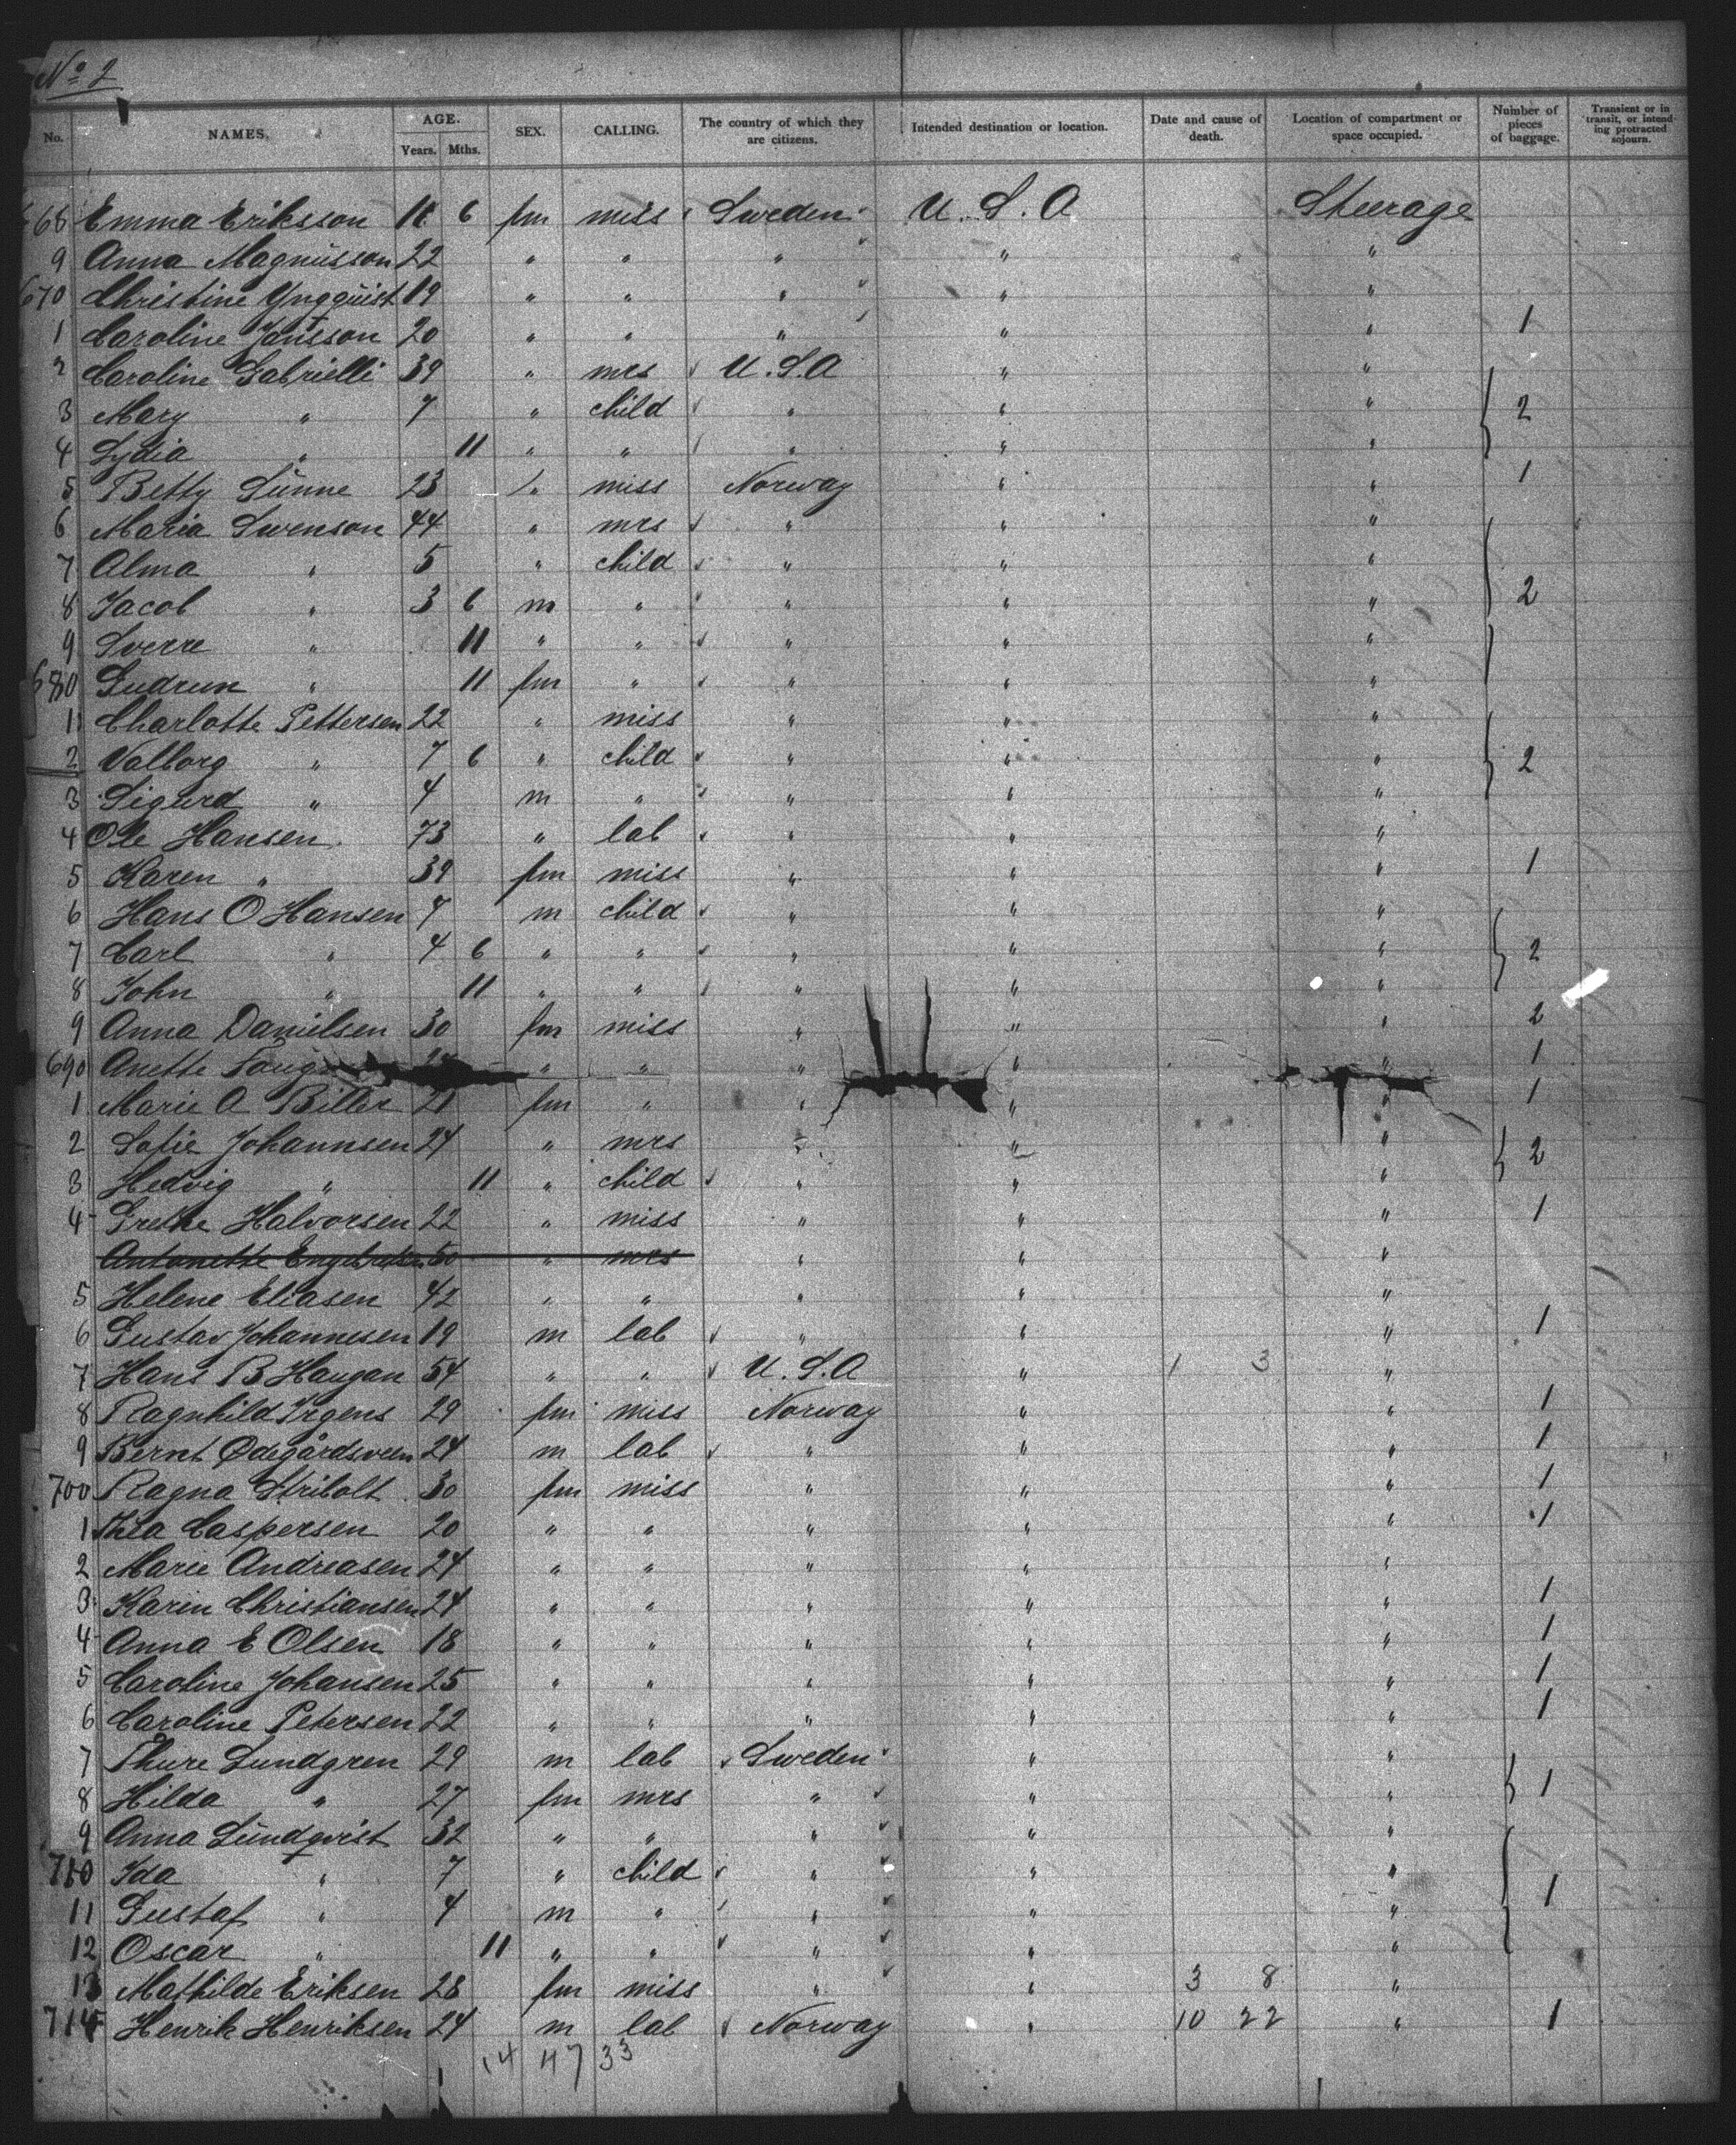 No 2
No. NAMES. AGE. Years. Mths. SEX. CALLING. The country of which they are citizens. Intended destination or location. Date and cause of death. Location of compartment or space occupied. Number of pieces of baggage. Transient or in transit, or intending protracted sojourn.
668 Emma Eriksson 11 6 fm miss Sweden U.S.A Steerage
9 Anna Magnusson 22 " " " " "
670 Christine Yngquist 19 " " " " "
1 Caroline Jansson 20 " " " " " 1
2 Caroline Gabrielli 39 " mrs U.S.A " "
3 Mary " 7 " child " " " 2
4 Lydia " 11 " " " " "
5 Betty Sunne 23 " miss Norway " " 1
6 Maria Swenson 44 " mrs " " "
7 Alma " 5 " child " " "
8 Jacob " 3 6 m " " " " 2
9 Sverre " 11 " " " " "
680 Gudrun " 11 fm " " " "
1 Charlotte Pettersen 22 " miss " " "
2 Valborg " 7 6 " child " " " 2
3 Sigurd " 4 m " " " "
4 Ole Hansen 73 " lab " " "
5 Karen " 39 fm miss " " " 1
6 Hans O Hansen 7 m child " " "
7 Carl " 4 6 " " " " " 2
8 John " 11 " " " " "
9 Anna Danielsen 30 fm miss " " " 2
690 Anette " " " " " 1
1 Marie A Biller 21 fm " " " " 1
2 Sofie Johannsen 24 " mrs " " " 2
3 Hedvig " 11 " child " " "
4 Grethe Halvorsen 22 " miss " " " 1
Antonette Engebretsen 50 " mrs " " "
5 Helene Eliasen 42 " " " " "
6 Gustav Johannesen 19 m lab " " " 1
7 Hans B Haugan 54 " " U.S.A " 1 3 "
8 Ragnhild Irgens 29 fm miss Norway " " 1
9 Bernt Ødegårdsveen 24 m lab " " " 1
700 Ragna Stribolt 30 fm miss " " " 1
1 Thea Caspersen 20 " " " " " 1
2 Marie Andreasen 24 " " " " "
3 Karin Christiansen 24 " " " " " 1
4 Anna E Olsen 18 " " " " " 1
5 Caroline Johansen 25 " " " " " 1
6 Caroline Petersen 22 " " " " " 1
7 Thure Lundgren 29 m lab Sweden " "
8 Hilda " 27 fm mrs " " " 1
9 Anna Lundqvist 32 " " " " "
710 Ida " 7 " child " " "
11 Gustaf " 4 m " " " " 1
12 Oscar " 11 " " " " "
13 Mathilde Eriksen 28 fm miss " " 3 8 "
714 Henrik Henriksen 24 m lab Norway " 10 22 " 1
14 47 33